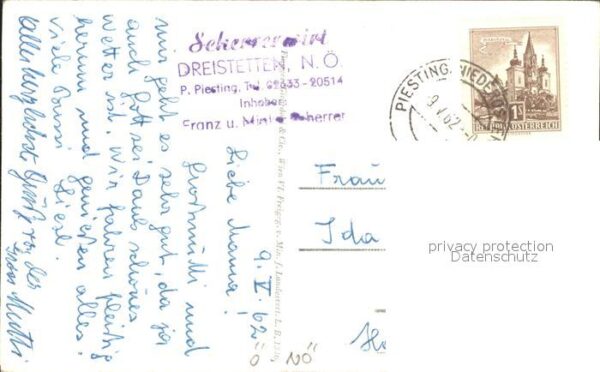 Schererwirt
DREISTETTEN, N.Ö.
P. Piesting, Tel. 02633-20514
Inhaber
Franz u. Scherrer
PIESTING, NIEDERÖSTER
9.V.62
MARIAZELL
1S
REPUBLIK ÖSTERREICH
9. V. 62
Liebe Mama!
Großmutti und
mir geht es sehr gut, da ja
auch Gott sei Dank schönes
Wetter ist. Wir fahren fleißig
herum und genießen alles.
viele Bussi Liesl.
Allerherzlichste Grüße von der
Mutti
Frau
Ida
NÖ
privacy protection
Datenschutz